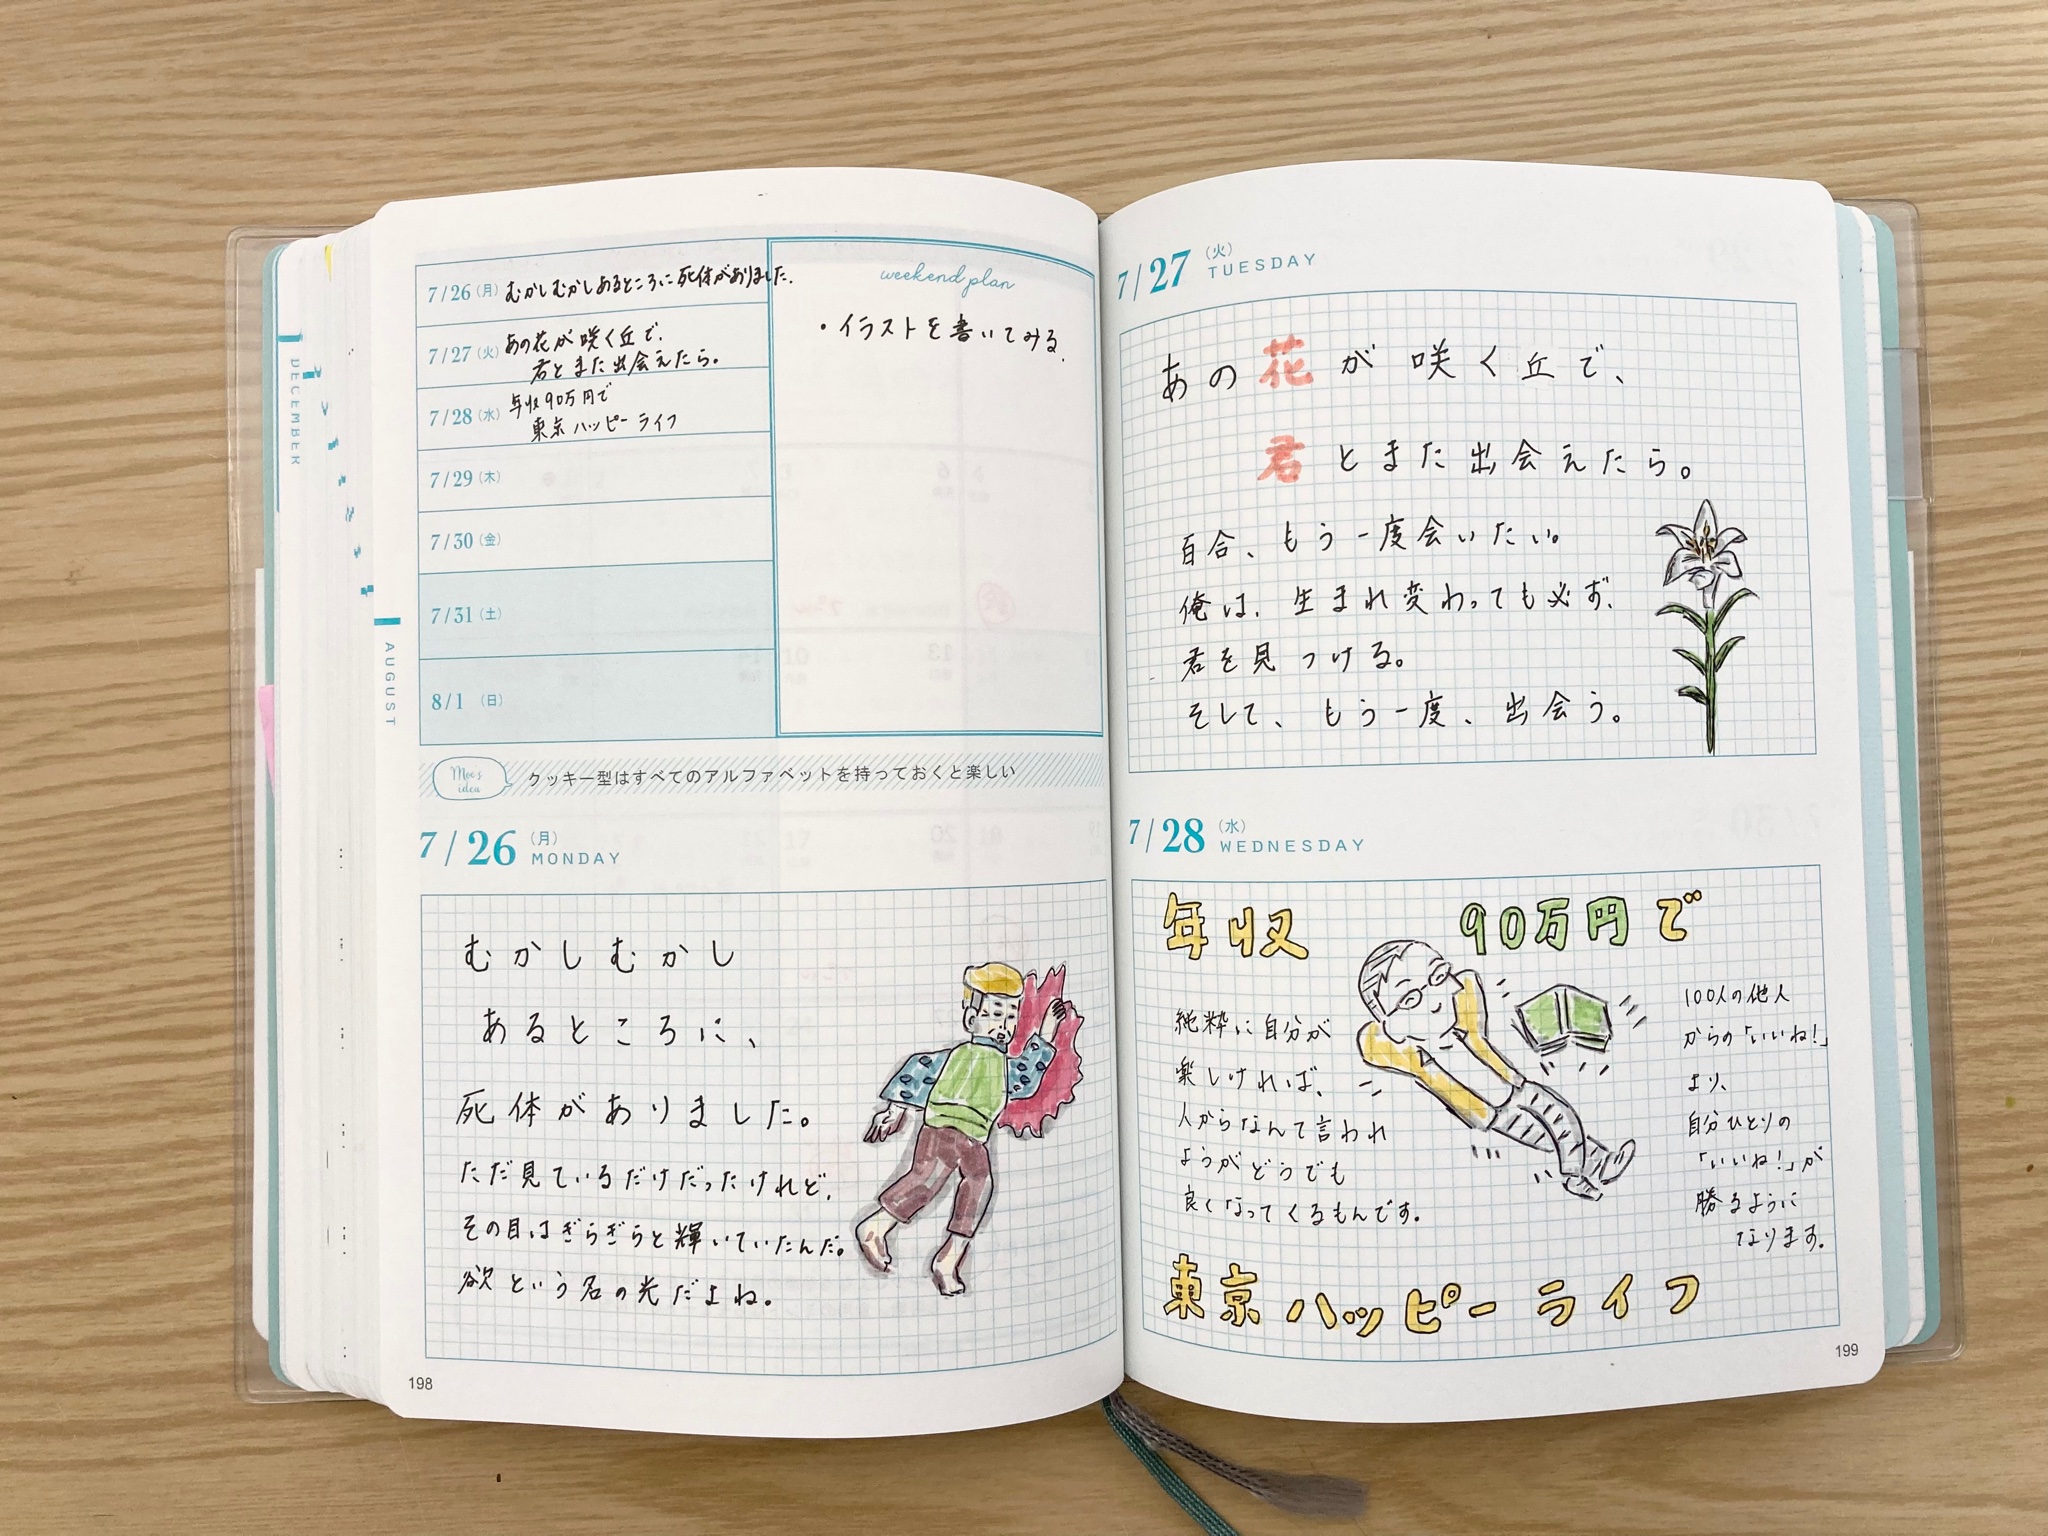 7/26(月) むかしむかしあるところに死体がありました.
7/27(火) あの花が咲く丘で、
君とまた出会えたら。
7/28(水) 年収90万円で
東京ハッピーライフ
7/29(木)
7/30(金)
7/31(土)
8/1(日)
weekend plan
・イラストを書いてみる.
DECEMBER
AUGUST
Moe's idea
クッキー型はすべてのアルファベットを持っておくと楽しい
7/26 (月) MONDAY
むかしむかし
あるところに、
死体がありました。
ただ見ているだけだったけれど、
その目はぎらぎらと輝いていたんだ。
欲という名の光だよね。
198
7/27 (火) TUESDAY
あの花が咲く丘で、
君とまた出会えたら。
百合、もう一度会いたい。
俺は、生まれ変わっても必ず、
君を見つける。
そして、もう一度、出会う。
7/28 (水) WEDNESDAY
年収 90万円で
純粋に自分が
楽しければ、
人からなんて言われ
ようがどうでも
良くなってくるもんです。
100人の他人
からの「いいね!」
より、
自分ひとりの
「いいね!」が
勝るように
なります。
東京ハッピーライフ
199